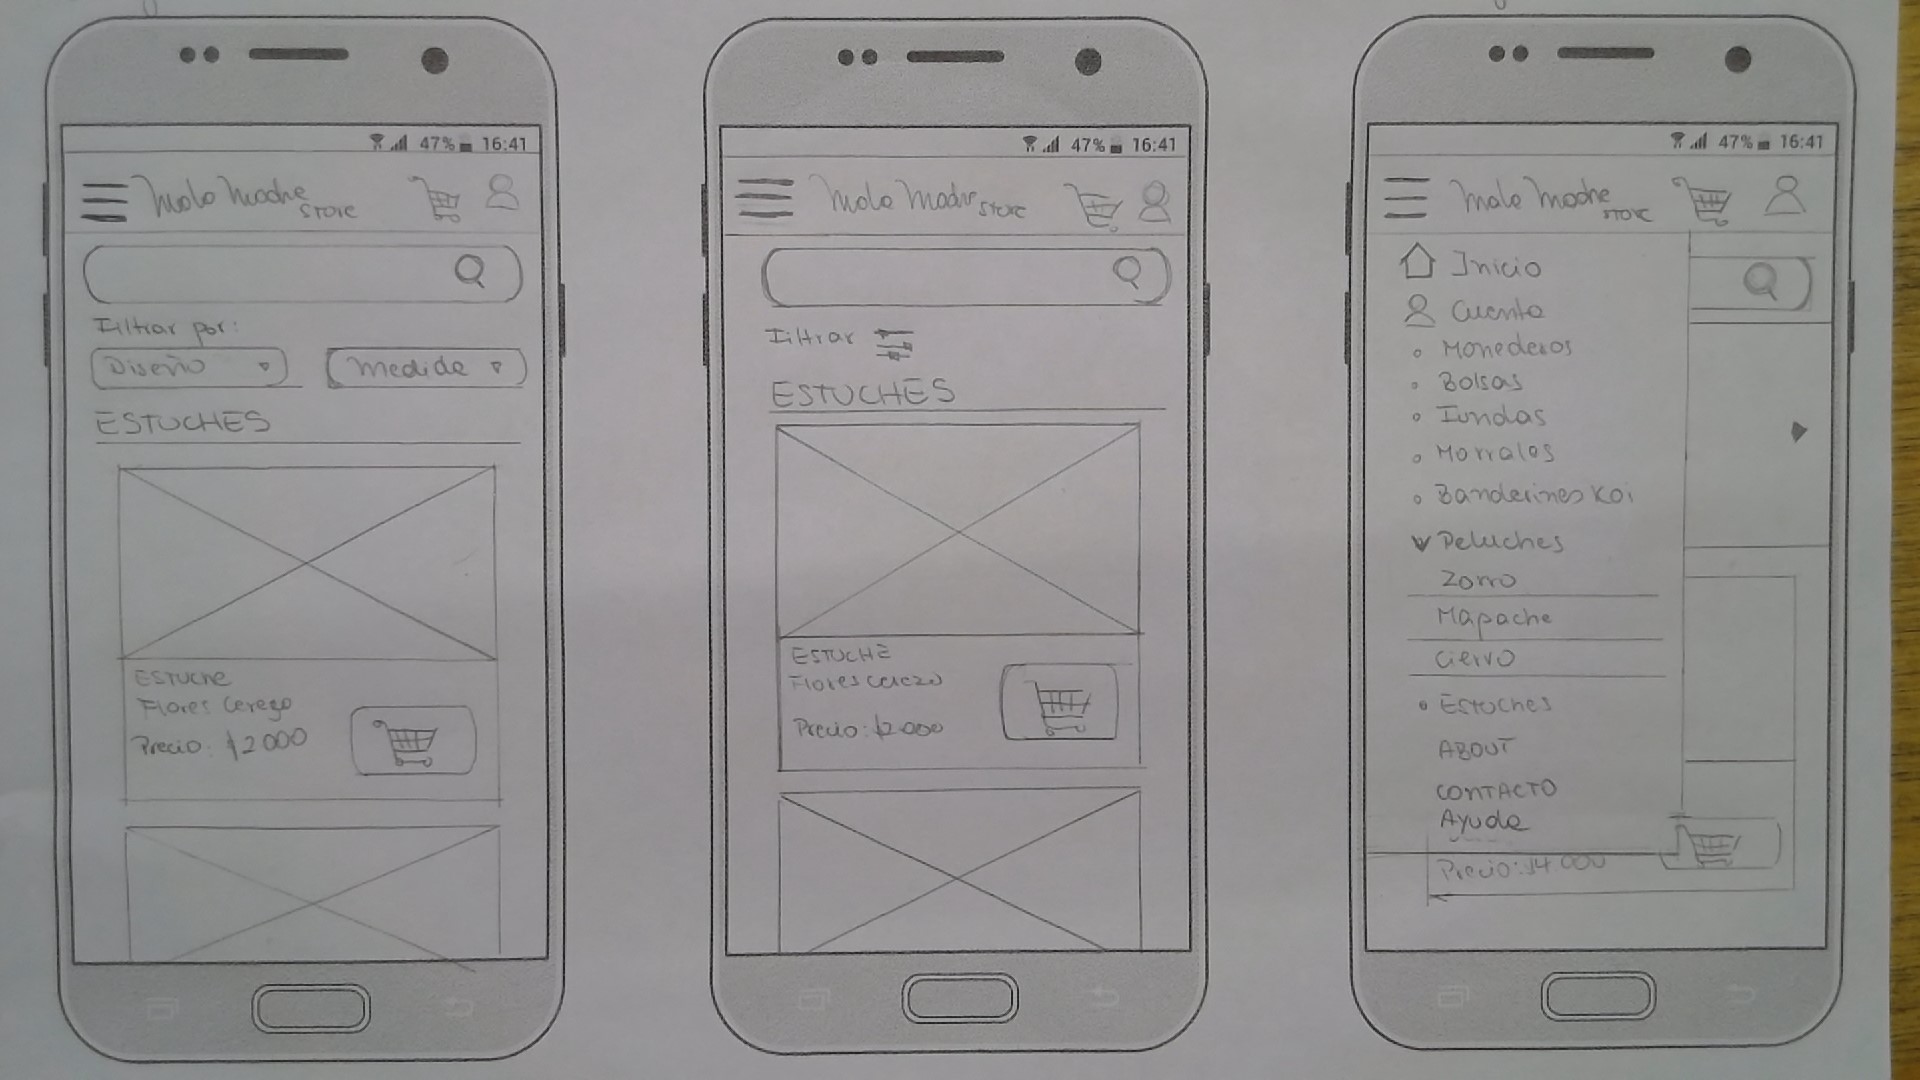 47% 16:41
Mala Madre
STORE
Filtrar por:
Diseño
Medida
ESTUCHES
ESTUCHE
Flores Cerezo
Precio: $2000
47% 16:41
Mala Madre
STORE
Filtrar
ESTUCHES
ESTUCHE
Flores cerezo
Precio: $2000
47% 16:41
Mala Madre
STORE
Inicio
Cuenta
Monederos
Bolsas
Fundas
Morrales
Banderines Koi
Peluches
Zorro
Mapache
Ciervo
Estuches
ABOUT
CONTACTO
Ayuda
Precio: $4000